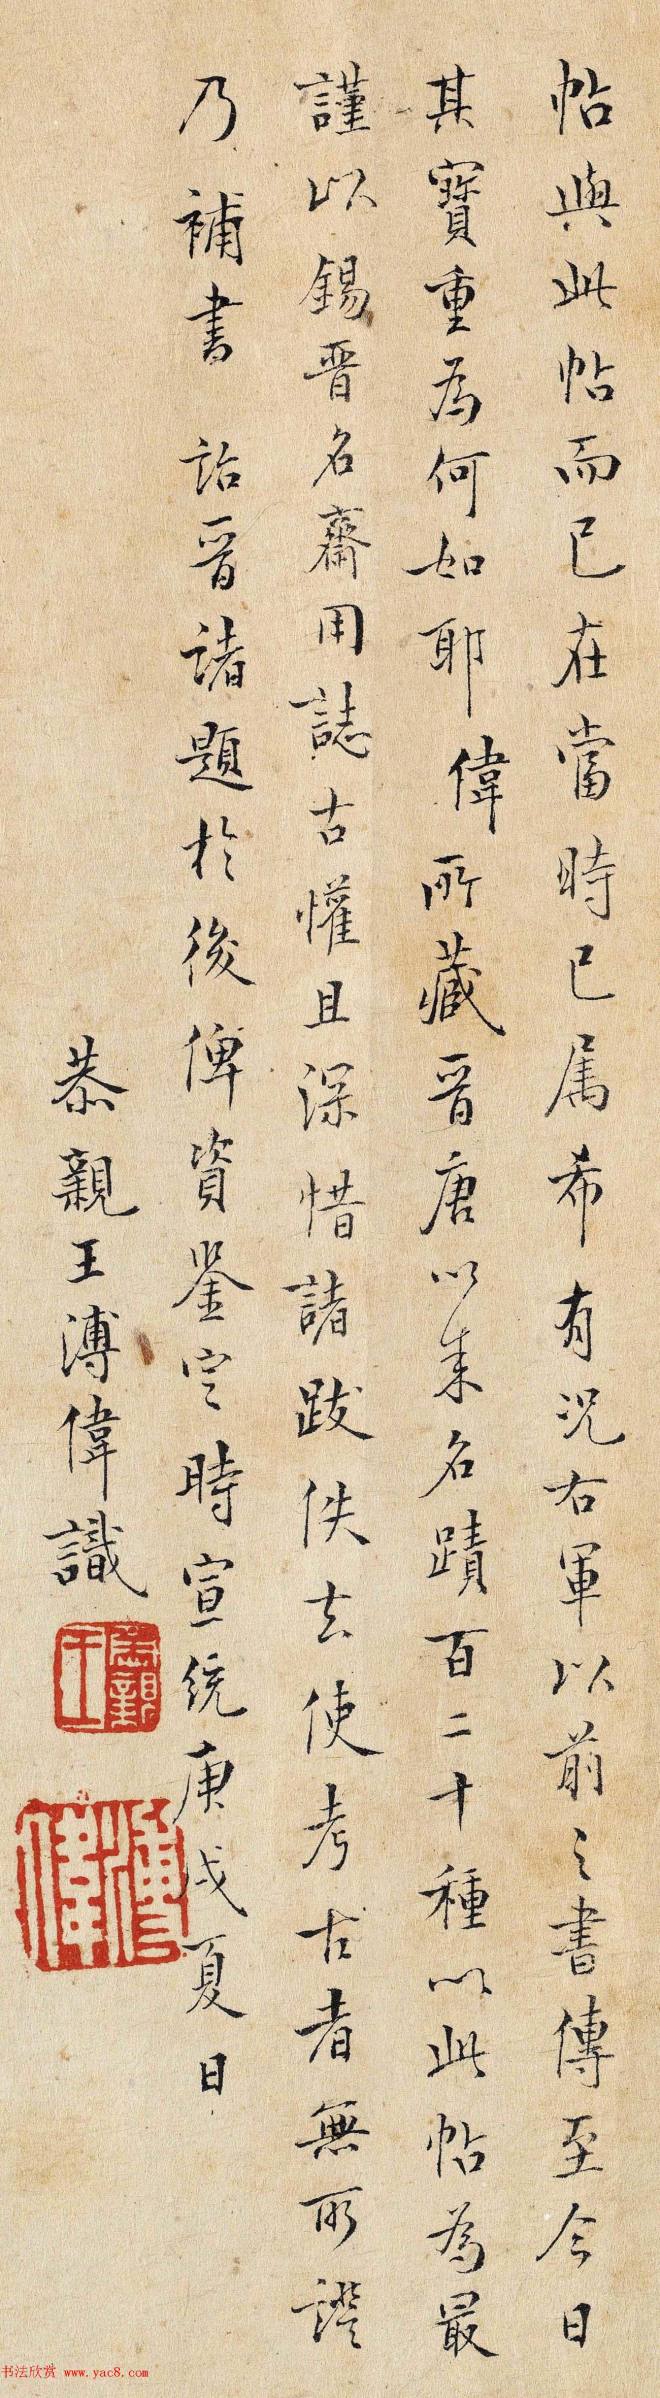 帖與此帖而已在當時已屬希有況右軍以前之書傳至今日
其寶重為何如耶偉所藏晉唐以來名蹟百二十種以此帖為最
謹以錫晉名齋用誌古懽且深惜諸跋佚去使考古者無所證
乃補書 詒晉諸題於後俾資鉴定時宣統庚戌夏日
恭親王溥偉識
恭親王
溥偉
书法欣赏 www.yac8.com